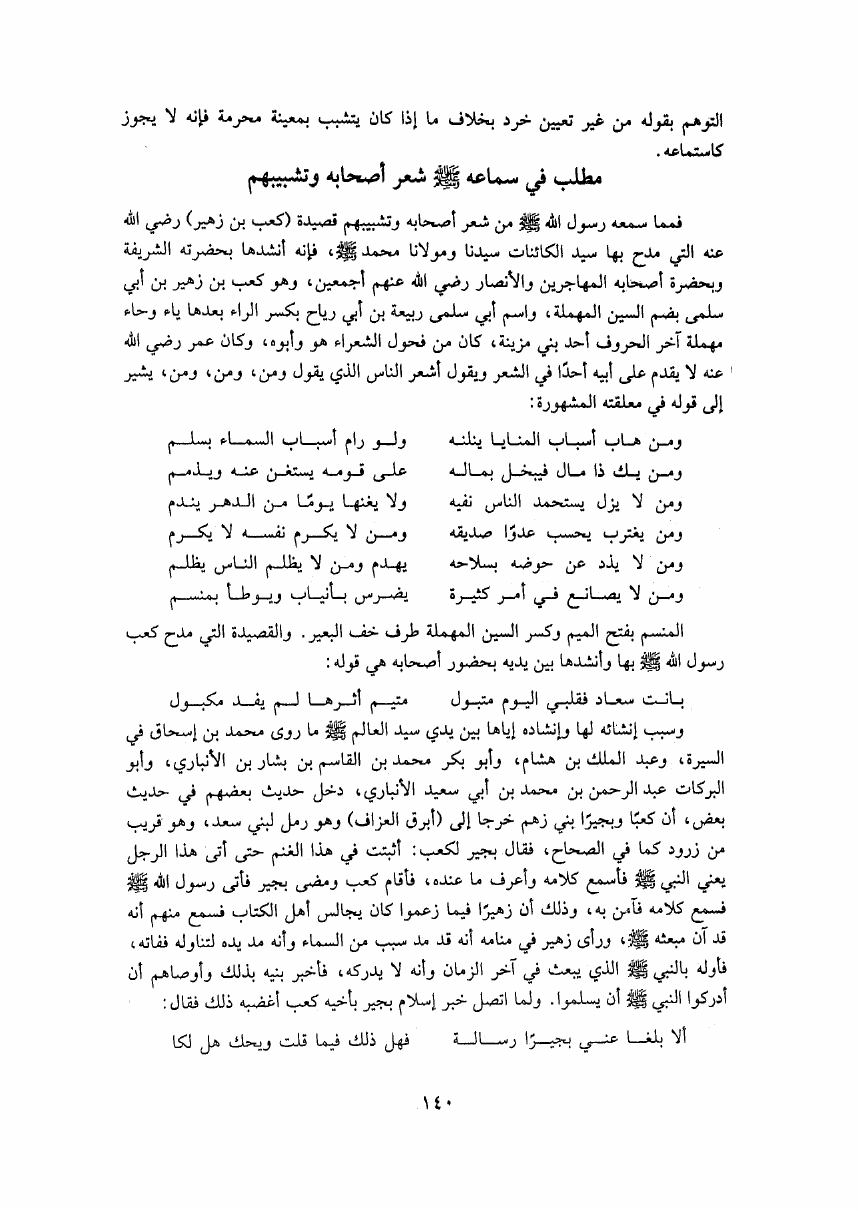 التوهم بقوله من غير تعيين خرد بخلاف ما إذا كان يتشبب بمعينة محرمة فإنه لا يجوز
كاستماعه.
مطلب في سماعه ﷺ شعر أصحابه وتشبيبهم
فمما سمعه رسول الله ﷺ من شعر أصحابه وتشبيبهم قصيدة (كعب بن زهير) رضي الله
عنه التي مدح بها سيد الكائنات سيدنا ومولانا محمد ﷺ، فإنه أنشدها بحضرته الشريفة
وبحضرة أصحابه المهاجرين والأنصار رضي الله عنهم أجمعين، وهو كعب بن زهير بن أبي
سلمى بضم السين المهملة، واسم أبي سلمى ربيعة بن أبي رياح بكسر الراء بعدها ياء وحاء
مهملة آخر الحروف أحد بني مزينة، كان من فحول الشعراء هو وأبوه، وكان عمر رضي الله
عنه لا يقدم على أبيه أحدًا في الشعر ويقول أشعر الناس الذي يقول ومن، ومن، ومن، يشير
إلى قوله في معلقته المشهورة:
ومن هاب أسباب المنايا ينلنه ولو رام أسباب السماء بسلم
ومن يك ذا مال فيبخل بماله على قومه يستغن عنه ويذمم
ومن لا يزل يستحمد الناس نفيه ولا يغنها يومًا من الدهر يندم
ومن يغترب يحسب عدوًا صديقه ومن لا يكرم نفسه لا يكرم
ومن لا يذد عن حوضه بسلاحه يهدم ومن لا يظلم الناس يظلم
ومن لا يصانع في أمر كثيرة يضرس بأنياب ويوطأ بمنسم
المنسم بفتح الميم وكسر السين المهملة طرف خف البعير. والقصيدة التي مدح كعب
رسول الله ﷺ بها وأنشدها بين يديه بحضور أصحابه هي قوله:
بانت سعاد فقلبي اليوم متبول متيم أثرها لم يفد مكبول
وسبب إنشائه لها وإنشاده إياها بين يدي سيد العالم ﷺ ما روى محمد بن إسحاق في
السيرة، وعبد الملك بن هشام، وأبو بكر محمد بن القاسم بن بشار بن الأنباري، وأبو
البركات عبد الرحمن بن محمد بن أبي سعيد الأنباري، دخل حديث بعضهم في حديث
بعض، أن كعبًا وبجيرًا بني زهم خرجا إلى (أبرق العزاف) وهو رمل لبني سعد، وهو قريب
من زرود كما في الصحاح، فقال بجير لكعب: أثبتت في هذا الغنم حتى أتى هذا الرجل
يعني النبي ﷺ فأسمع كلامه وأعرف ما عنده، فأقام كعب ومضى بجير فأتى رسول الله ﷺ
فسمع كلامه فآمن به، وذلك أن زهيرًا فيما زعموا كان يجالس أهل الكتاب فسمع منهم أنه
قد آن مبعثه ﷺ، ورأى زهير في منامه أنه قد مد سبب من السماء وأنه مد يده لتناوله ففاته،
فأوله بالنبي ﷺ الذي يبعث في آخر الزمان وأنه لا يدركه، فأخبر بنيه بذلك وأوصاهم أن
أدركوا النبي ﷺ أن يسلموا. ولما اتصل خبر إسلام بجير بأخيه كعب أغضبه ذلك فقال:
ألا بلغا عني بجيرًا رسالة فهل ذلك فيما قلت ويحك هل لكا
١٤٠